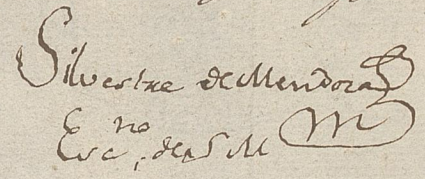 Silvestre de Mendoza
Esc.no de S M